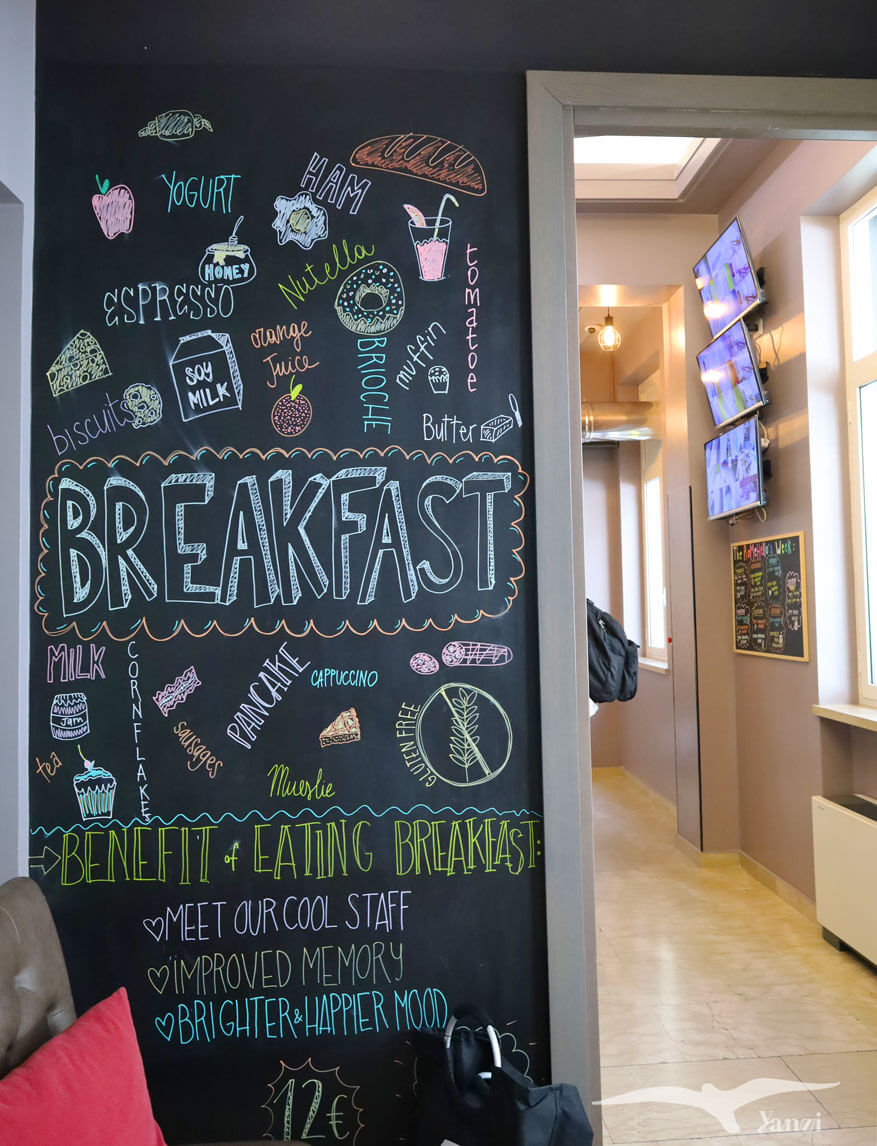 YOGURT
HAM
HONEY
Nutella
ESPRESSO
tomatoe
orange
Juice
SOY
MILK
BRIOCHE
muffin
biscuits
Butter
BREAKFAST
MILK
CORNFLAKES
PANCAKE
CAPPUCCINO
Jam
sausages
GLUTEN FREE
tea
Mueslie
BENEFIT of EATING BREAKFAST:
MEET OUR COOL STAFF
IMPROVED MEMORY
BRIGHTER & HAPPIER MOOD
12 €
The RoMeHello's Week:
Yanzi